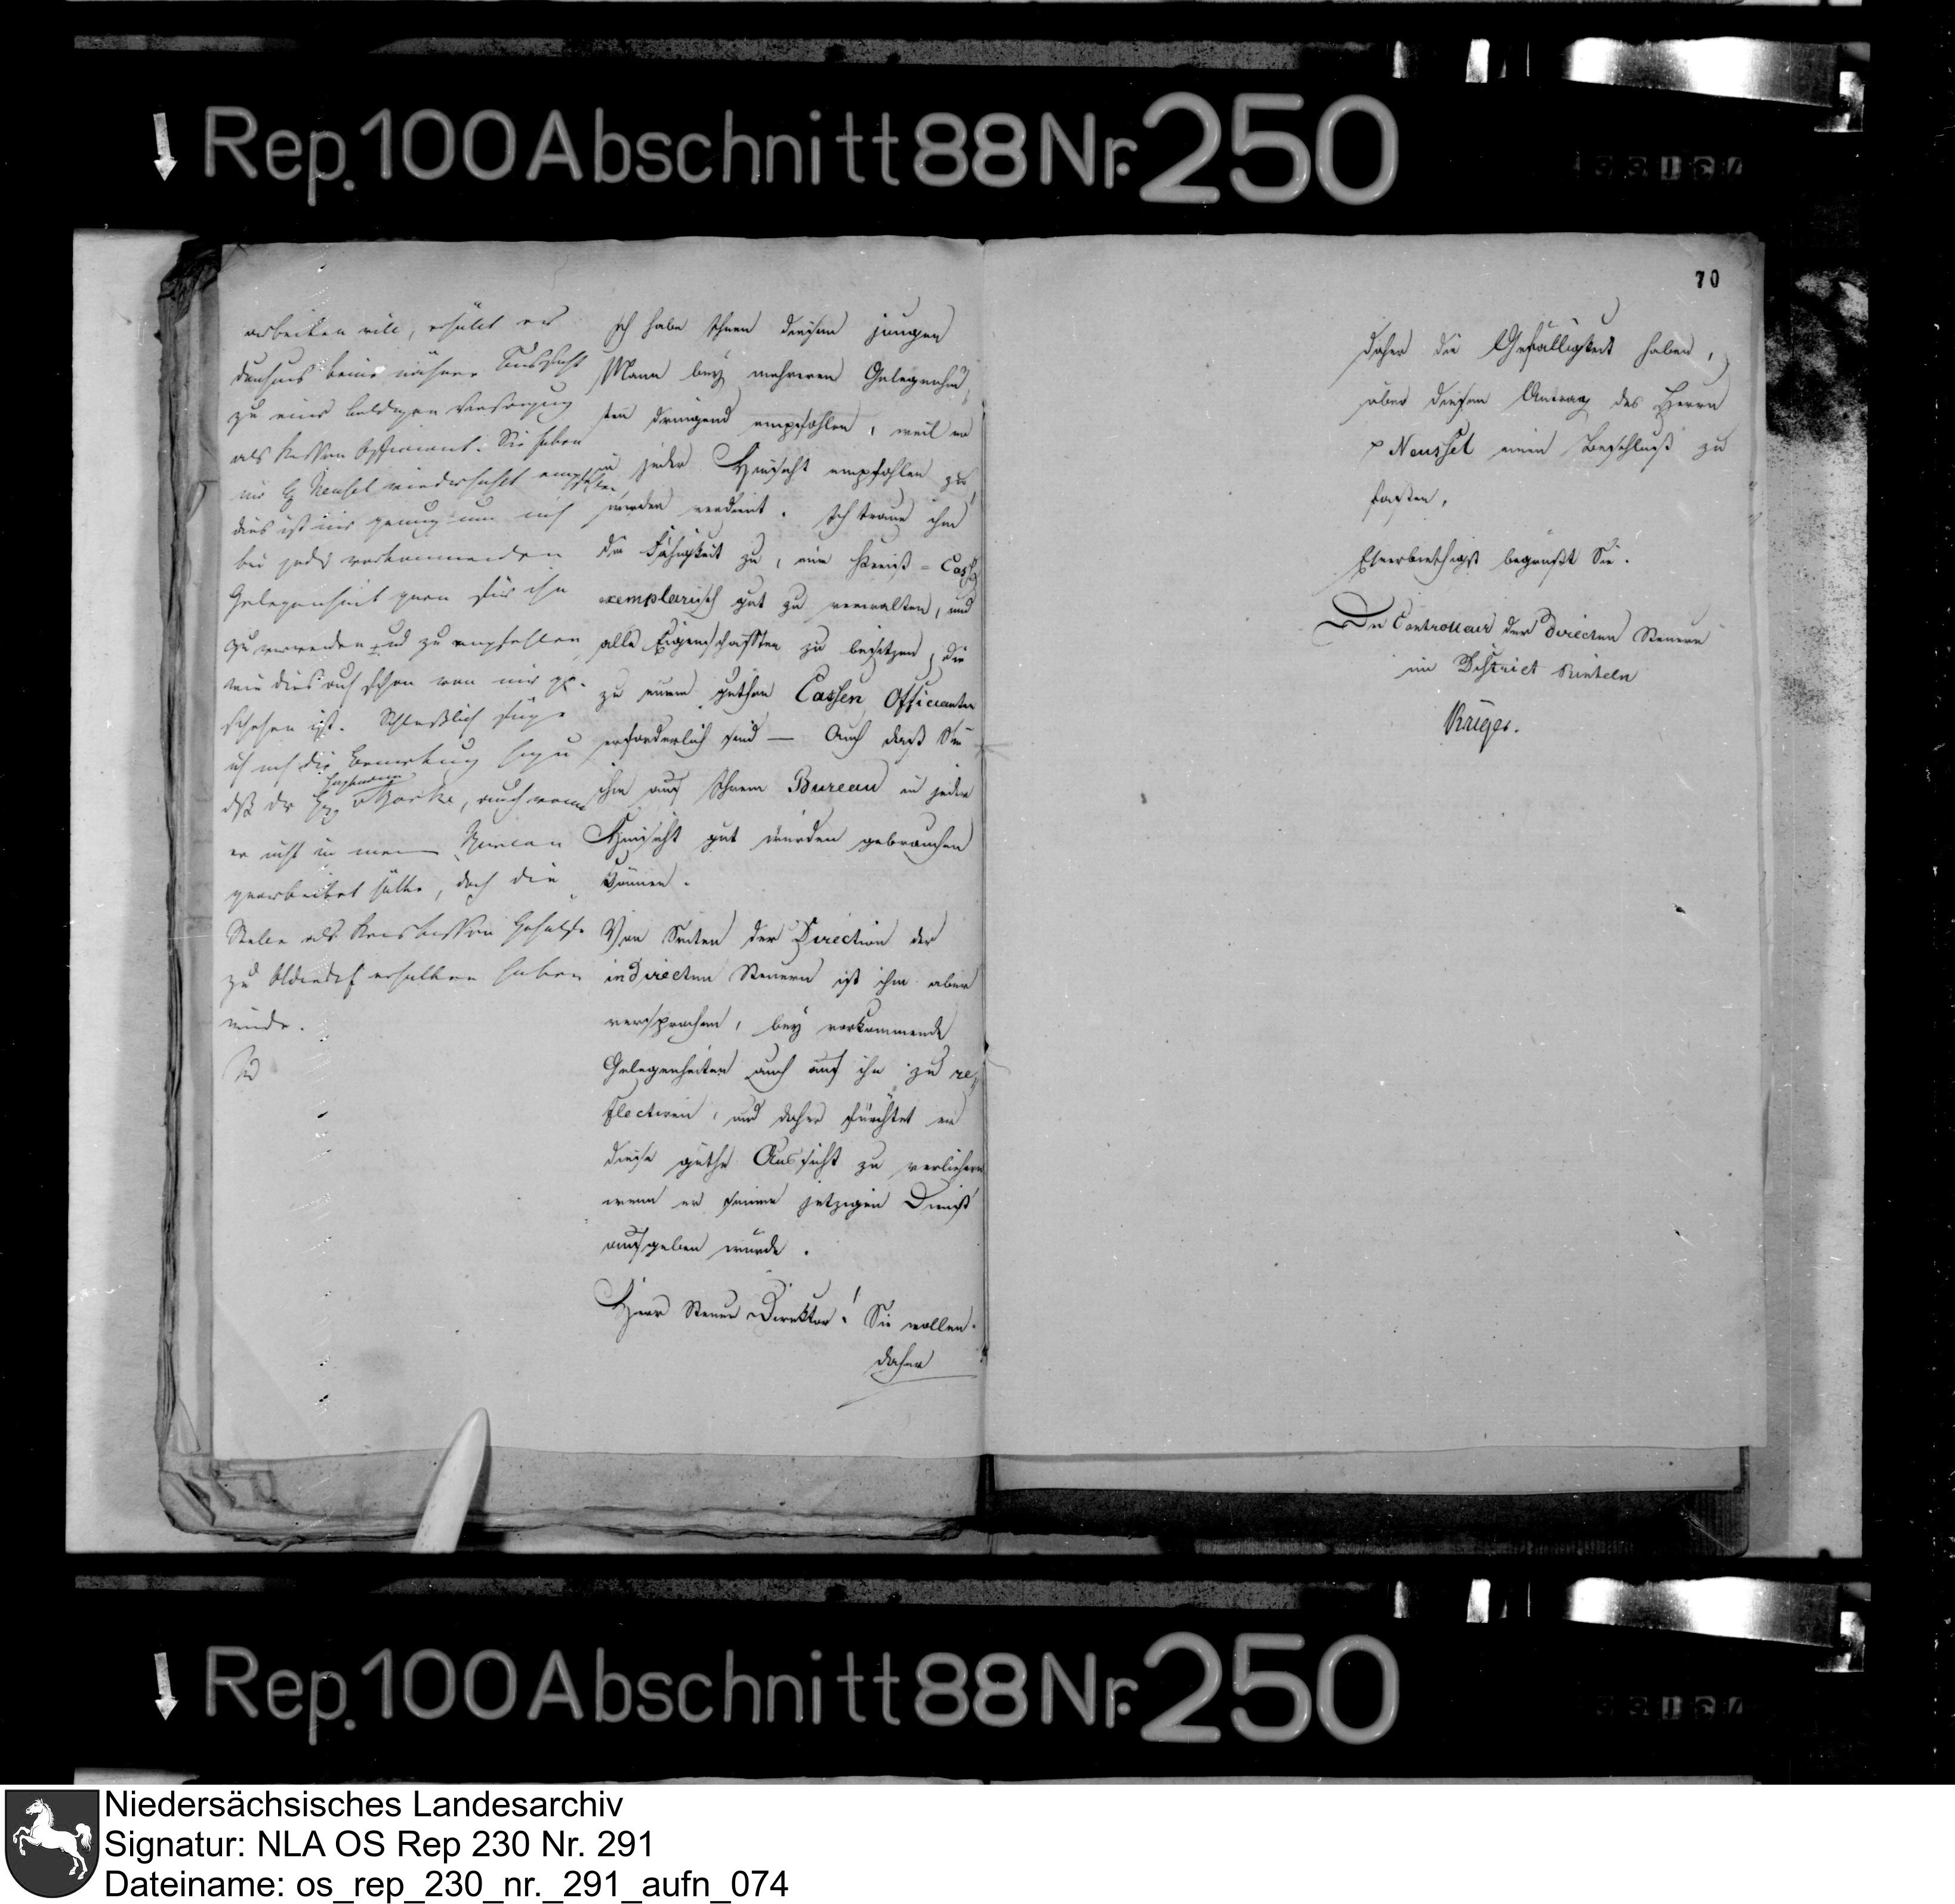 Rep. 100 Abschnitt 88 Nr. 250
arbeiten will, erhält er
durchaus keine nähere Aussicht
zu einer baldigen Versorgung
als Kassen Officiant. Sie haben
mir H Neusel wiederholt empfohlen,
dies ist mir genug um mich
bei jeder vorkommenden
Gelegenheit gern für ihn
zu verwenden und zu empfehlen,
wie dies auch schon von mir ge-
schehen ist. Schließlich füge
ich noch die Bemerkung hinzu
daß der Hr, auch wenn
er nicht in mein Bureau
gearbeitet hätte, doch die
Stelle als Kreiskassen Gehülfe
zu Oldendorf erhalten haben
würde.
Ich habe Ihnen diesen jungen
Mann bey mehreren Gelegenhei-
ten dringend empfohlen, weil er
in jeder Hinsicht empfohlen zu
werden verdient. Ich traue ihm
die Fähigkeit zu, eine Kreiß-Casse
exemplarisch gut zu verwalten, und
alle Eigenschafften zu besitzen, die
zu einem guthen Cassen Officianten
erforderlich sind — Auch daß Sie
ihn auf Ihrem Bureau in jeder
Hinsicht gut würden gebrauchen
können.
Von Seiten der Direction der
indirecten Steuern ist ihm aber
versprochen, bey vorkommende
Gelegenheiten auch auf ihn zu re-
flectiren, und daher fürchtet er
diese guthe Aussicht zu verliehren
wenn er seinen jetzigen Dienst
aufgeben würde.
Herr Steuer Direktor! Sie wollen
daher
70
daher die Gefälligkeit haben,
über diesen Antrag des Herrn
p Neussel einen Beschluß zu
faßen.
Ehrerbiethigst begrüßt Sie.
Der Controlleur der Directen Steuern
im District Rinteln
Krüger.
Rep. 100 Abschnitt 88 Nr. 250
Niedersächsisches Landesarchiv
Signatur: NLA OS Rep 230 Nr. 291
Dateiname: os_rep_230_nr._291_aufn_074